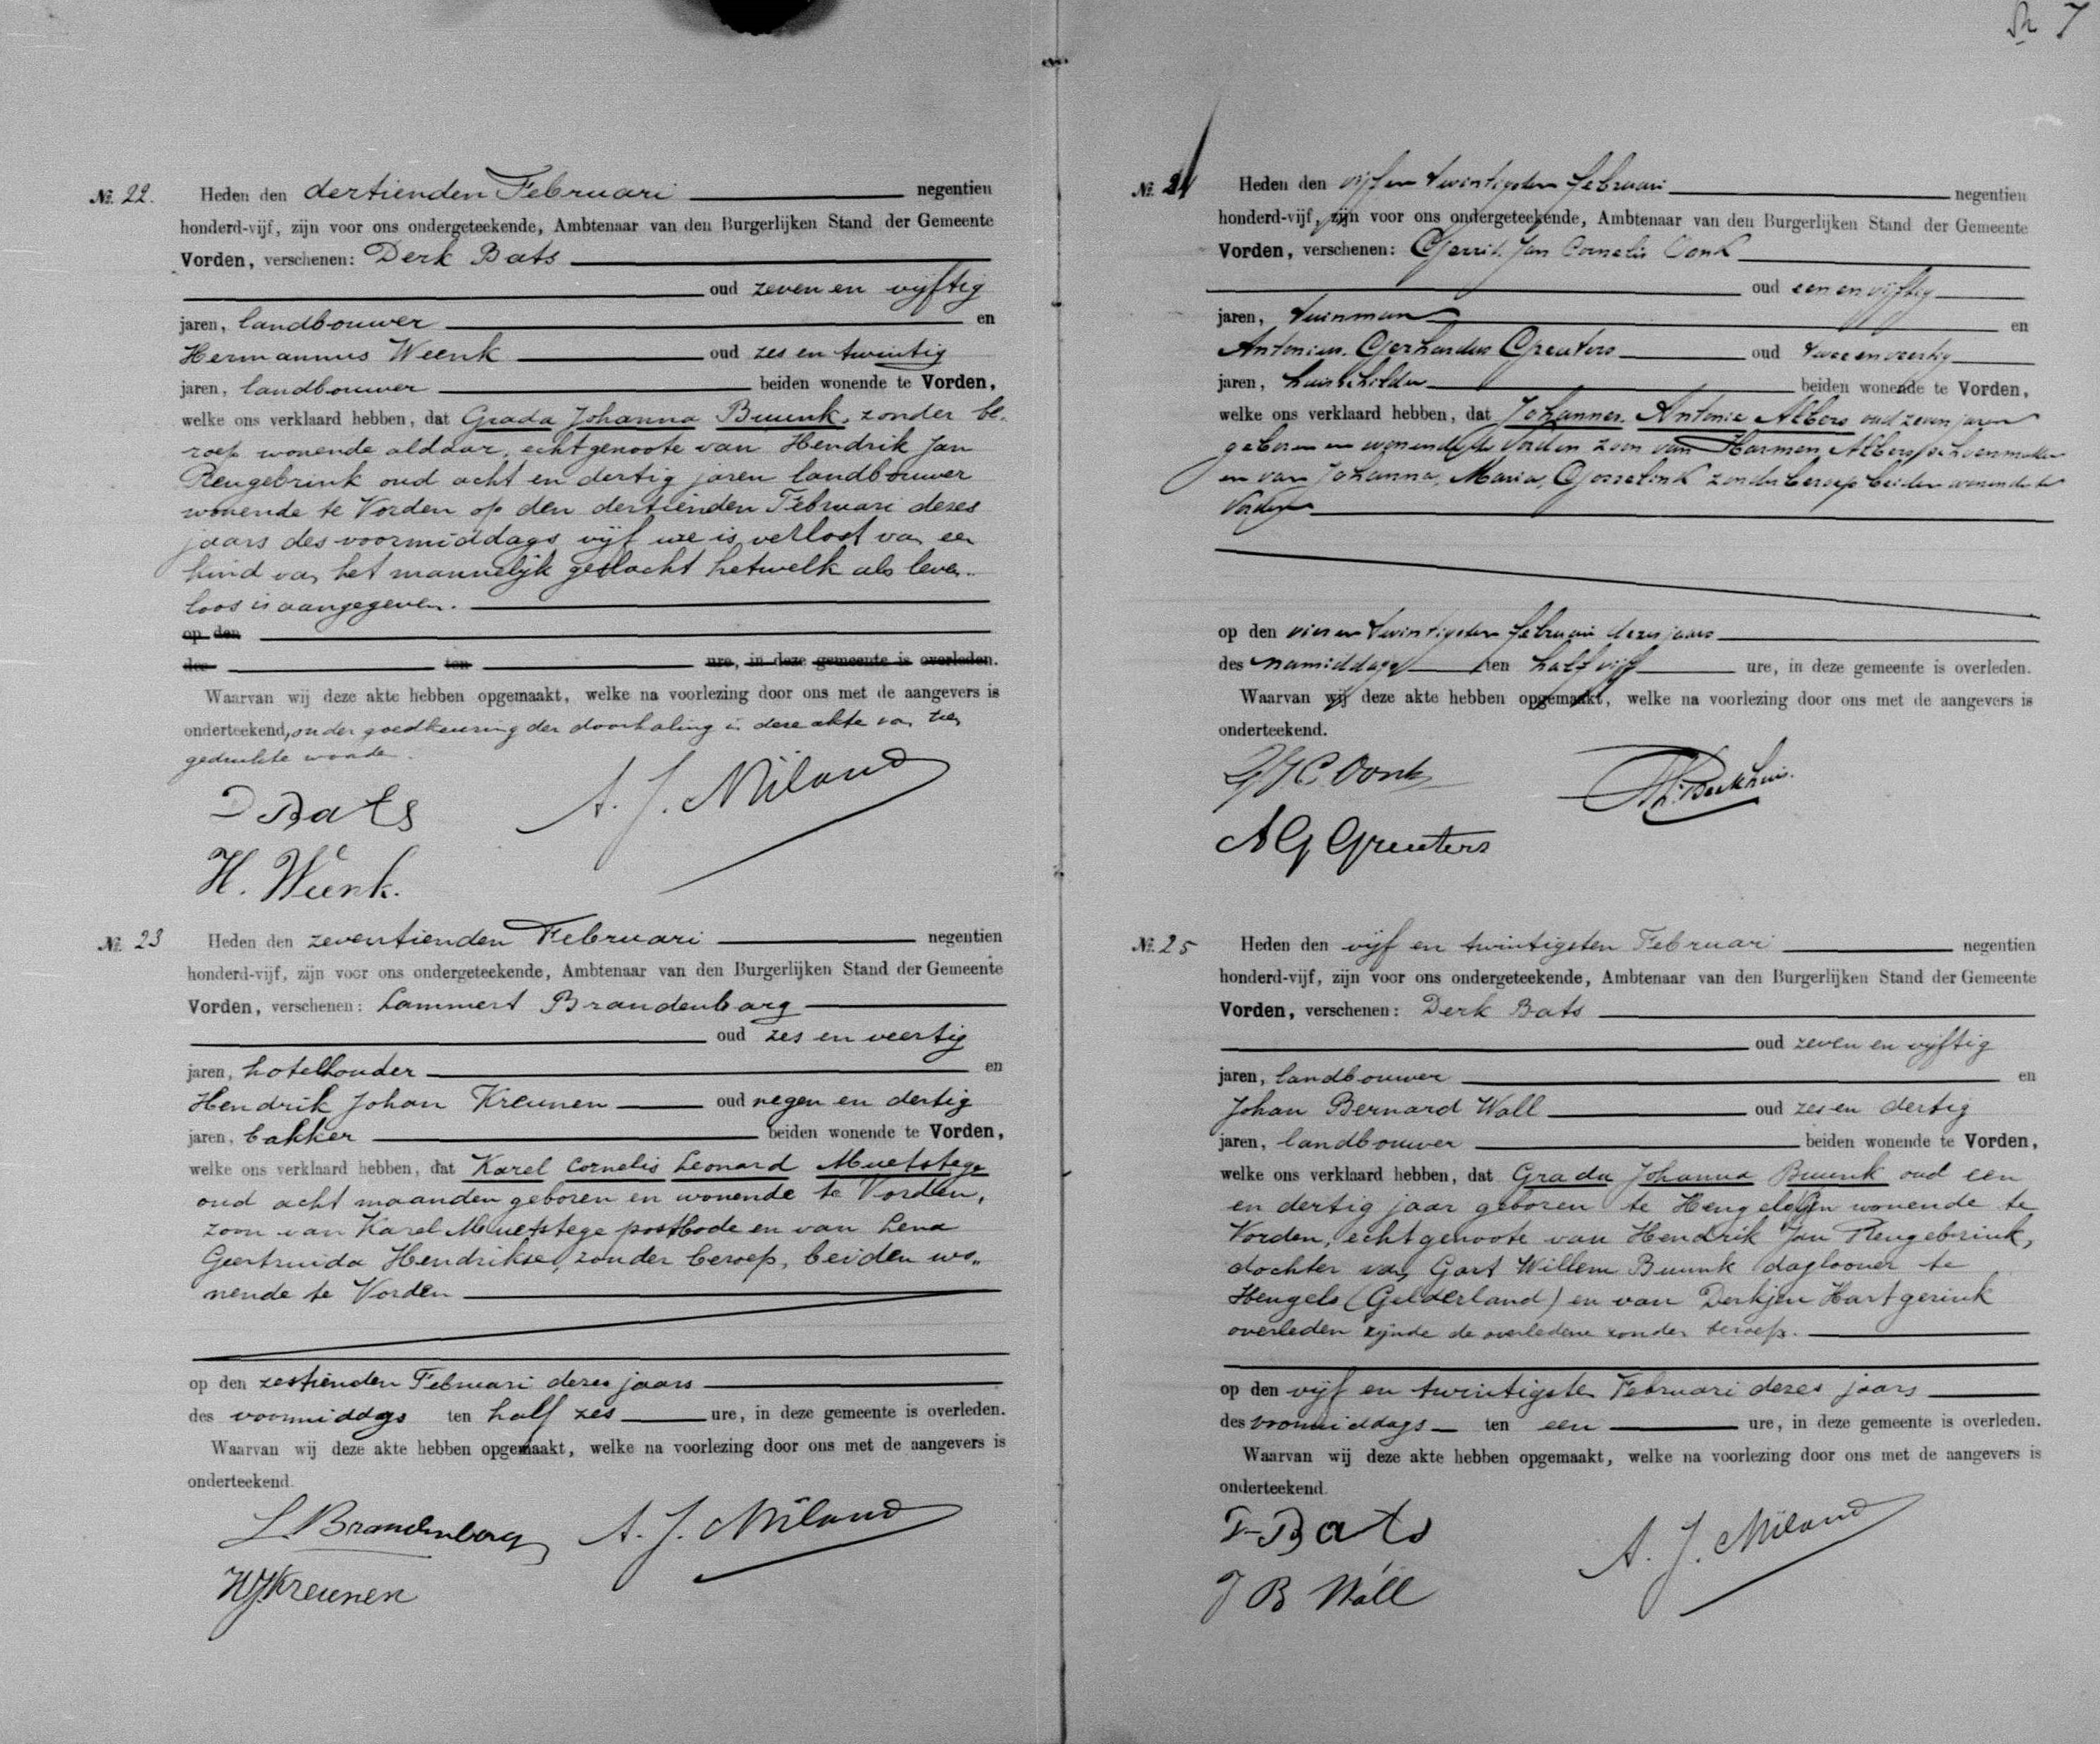 № 22. Heden den dertienden Februari negentien
honderd-vijf, zijn voor ons ondergeteekende, Ambtenaar van den Burgerlijken Stand der Gemeente
Vorden, verschenen: Derk Bats
oud zeven en vijftig
jaren, landbouwer en
Hermannus Weenk oud zes en twintig
jaren, landbouwer beiden wonende te Vorden,
welke ons verklaard hebben, dat Grada Johanna Buunk, zonder be-
roep wonende aldaar, echtgenoote van Hendrik Jan
Rengebrink oud acht en dertig jaren landbouwer
wonende te Vorden op den dertienden Februari dezes
jaars des voormiddags vijf ure is verlost van een
kind van het mannelijk geslacht hetwelk als leven-
loos is aangegeven.
op den
des ten ure, in deze gemeente is overleden.
Waarvan wij deze akte hebben opgemaakt, welke na voorlezing door ons met de aangevers is
onderteekend, onder goedkeuring der doorhaling in deze akte van tien
gedrukte woorden.
D Bats A. J. Miland
H. Weenk.
№ 23 Heden den zeventienden Februari negentien
honderd-vijf, zijn voor ons ondergeteekende, Ambtenaar van den Burgerlijken Stand der Gemeente
Vorden, verschenen: Lammert Brandenbarg
oud zes en veertig
jaren, hotelhouder en
Hendrik Johan Kreunen oud negen en dertig
jaren, bakker beiden wonende te Vorden,
welke ons verklaard hebben, dat Karel Cornelis Leonard Muetstege
oud acht maanden geboren en wonende te Vorden,
zoon van Karel Muetstege postbode en van Lena
Geertruida Hendrikse, zonder beroep, beiden wo-
nende te Vorden
op den zestienden Februari dezes jaars
des voormiddags ten half zes ure, in deze gemeente is overleden.
Waarvan wij deze akte hebben opgemaakt, welke na voorlezing door ons met de aangevers is
onderteekend.
L. Brandenbarg A. J. Miland
HJKreunen
7
№ 24 Heden den vijf en twintigsten Februari negentien
honderd-vijf, zijn voor ons ondergeteekende, Ambtenaar van den Burgerlijken Stand der Gemeente
Vorden, verschenen: Gerrit Jan Cornelis Oonk
oud een en vijftig
jaren, tuinman en
Antonius Gerhardus Greuters oud twee en veertig
jaren, huisschilder beiden wonende te Vorden,
welke ons verklaard hebben, dat Johannes Antonie Albers oud zeven jaren
geboren en wonende te Vorden zoon van Harmen Albers schoenmaker
en van Johanna Maria Gosselink zonder beroep beiden wonende te
Vorden
op den vier en twintigsten Februari dezes jaars
des namiddags ten half vijf ure, in deze gemeente is overleden.
Waarvan wij deze akte hebben opgemaakt, welke na voorlezing door ons met de aangevers is
onderteekend.
GJC Oonk
A G Greuters
№ 25 Heden den vijf en twintigsten Februari negentien
honderd-vijf, zijn voor ons ondergeteekende, Ambtenaar van den Burgerlijken Stand der Gemeente
Vorden, verschenen: Derk Bats
oud zeven en vijftig
jaren, landbouwer en
Johan Bernard Wall oud zes en dertig
jaren, landbouwer beiden wonende te Vorden,
welke ons verklaard hebben, dat Grada Johanna Buunk oud een
en dertig jaar geboren te Hengelo G en wonende te
Vorden, echtgenoote van Hendrik Jan Rengebrink,
dochter van Gart Willem Buunk daglooner te
Hengelo (Gelderland) en van Derkjen Hartgerink
overleden zijnde de overledene zonder beroep.
op den vijf en twintigsten Februari dezes jaars
des voormiddags ten een ure, in deze gemeente is overleden.
Waarvan wij deze akte hebben opgemaakt, welke na voorlezing door ons met de aangevers is
onderteekend.
D Bats A. J. Miland
J B Wall